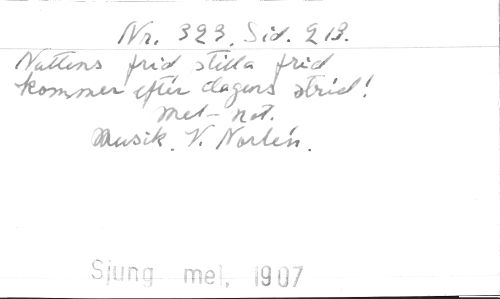 Nr. 323, Sid. 213.
Nattens frid stilla frid
kommer efter dagens strid!
mel- not.
Musik. V. Norlén.
Sjung mel. 1907